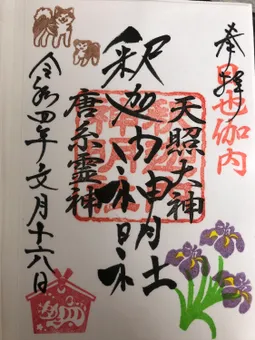 奉拝
日也伽内
天照大神
釈迦内神明社
唐糸霊神
令和四年文月十六日